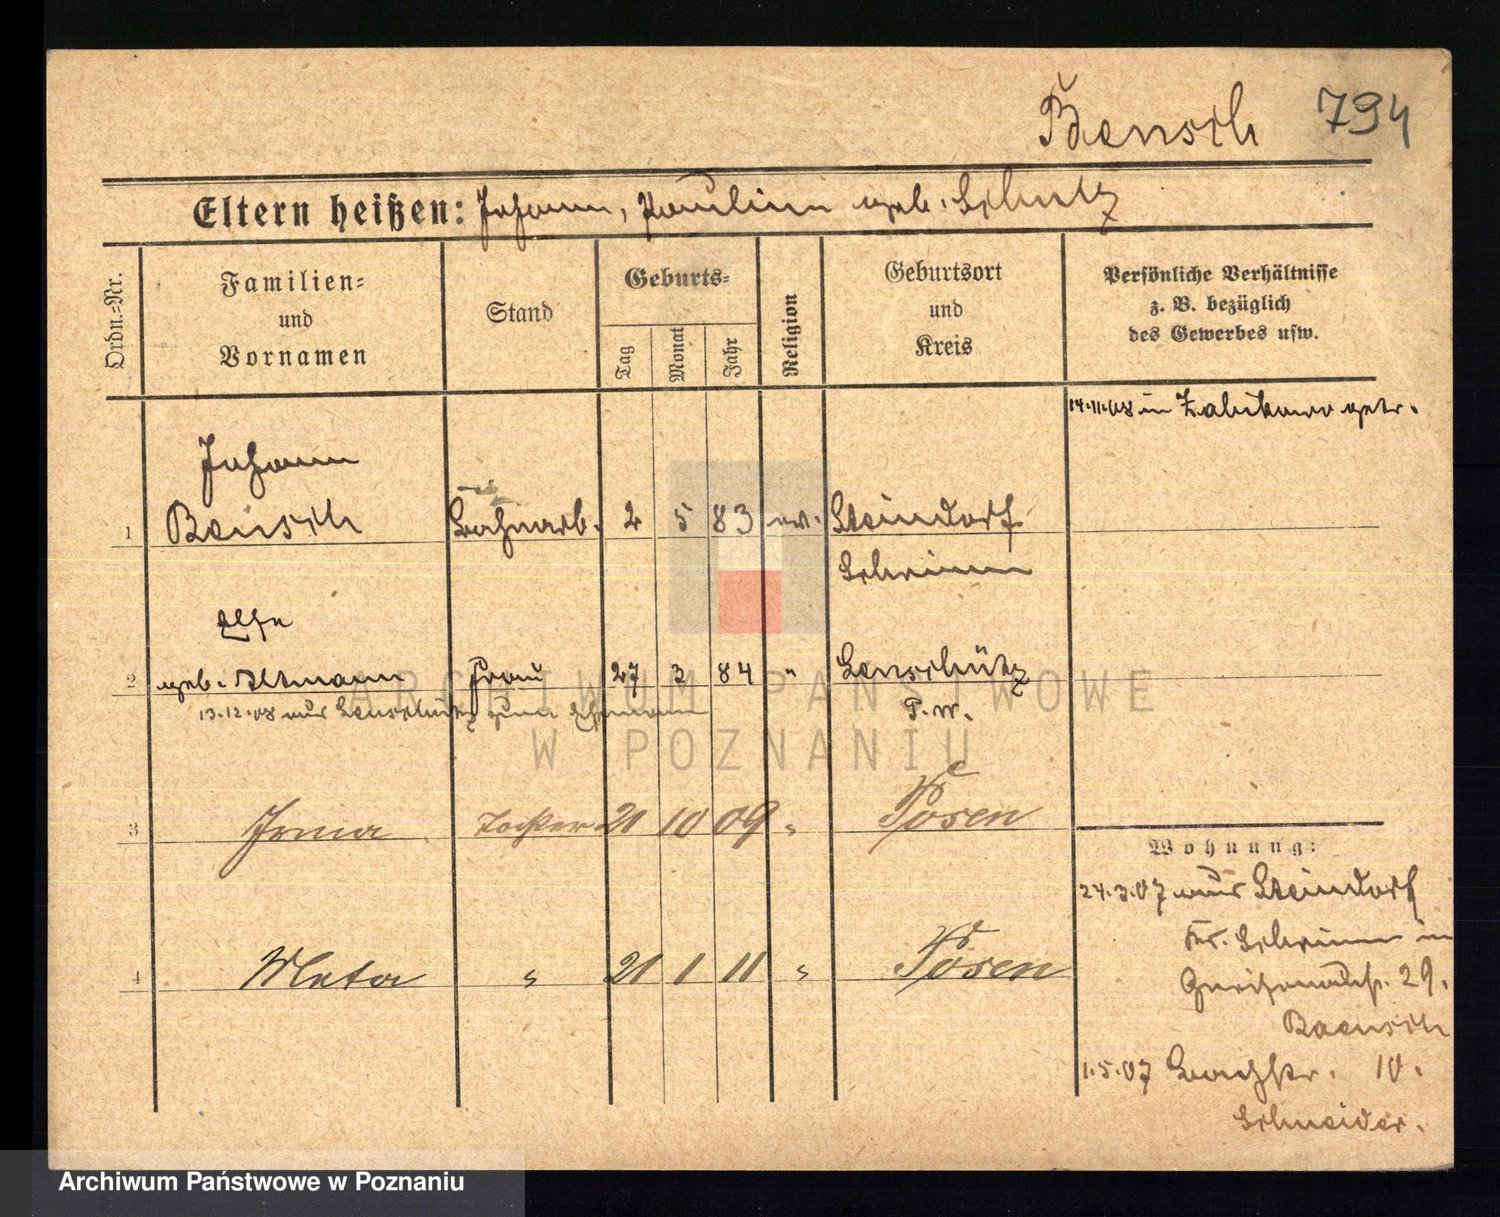 Baensch 794
Eltern heißen: Johann, Pauline geb. Schulz
Ordn.=Nr.
Familien=
und
Vornamen
Stand
Geburts=
Tag
Monat
Jahr
Religion
Geburtsort
und
Kreis
Persönliche Verhältnisse
z. B. bezüglich
des Gewerbes usw.
14.11.08 in Zabikowo getr.
Johann
1 Baensch 2 5 83 ev. Steindorf
Schrimm
2 geb. Altmann Frau 27 3 84 " Lenschütz
13.12.08 aus Lenschütz zum Ehemann P. W.
3 Irma Tochter 21 10 09 " Posen
4 Meta " 21 1 11 " Posen
Wohnung:
24.3.07 aus Steindorf
Kr. Schrimm in
29.
Baensch
1.5.07 Bachstr. 10.
Schneider.
ARCHIWUM PAŃSTWOWE
W POZNANIU
Archiwum Państwowe w Poznaniu